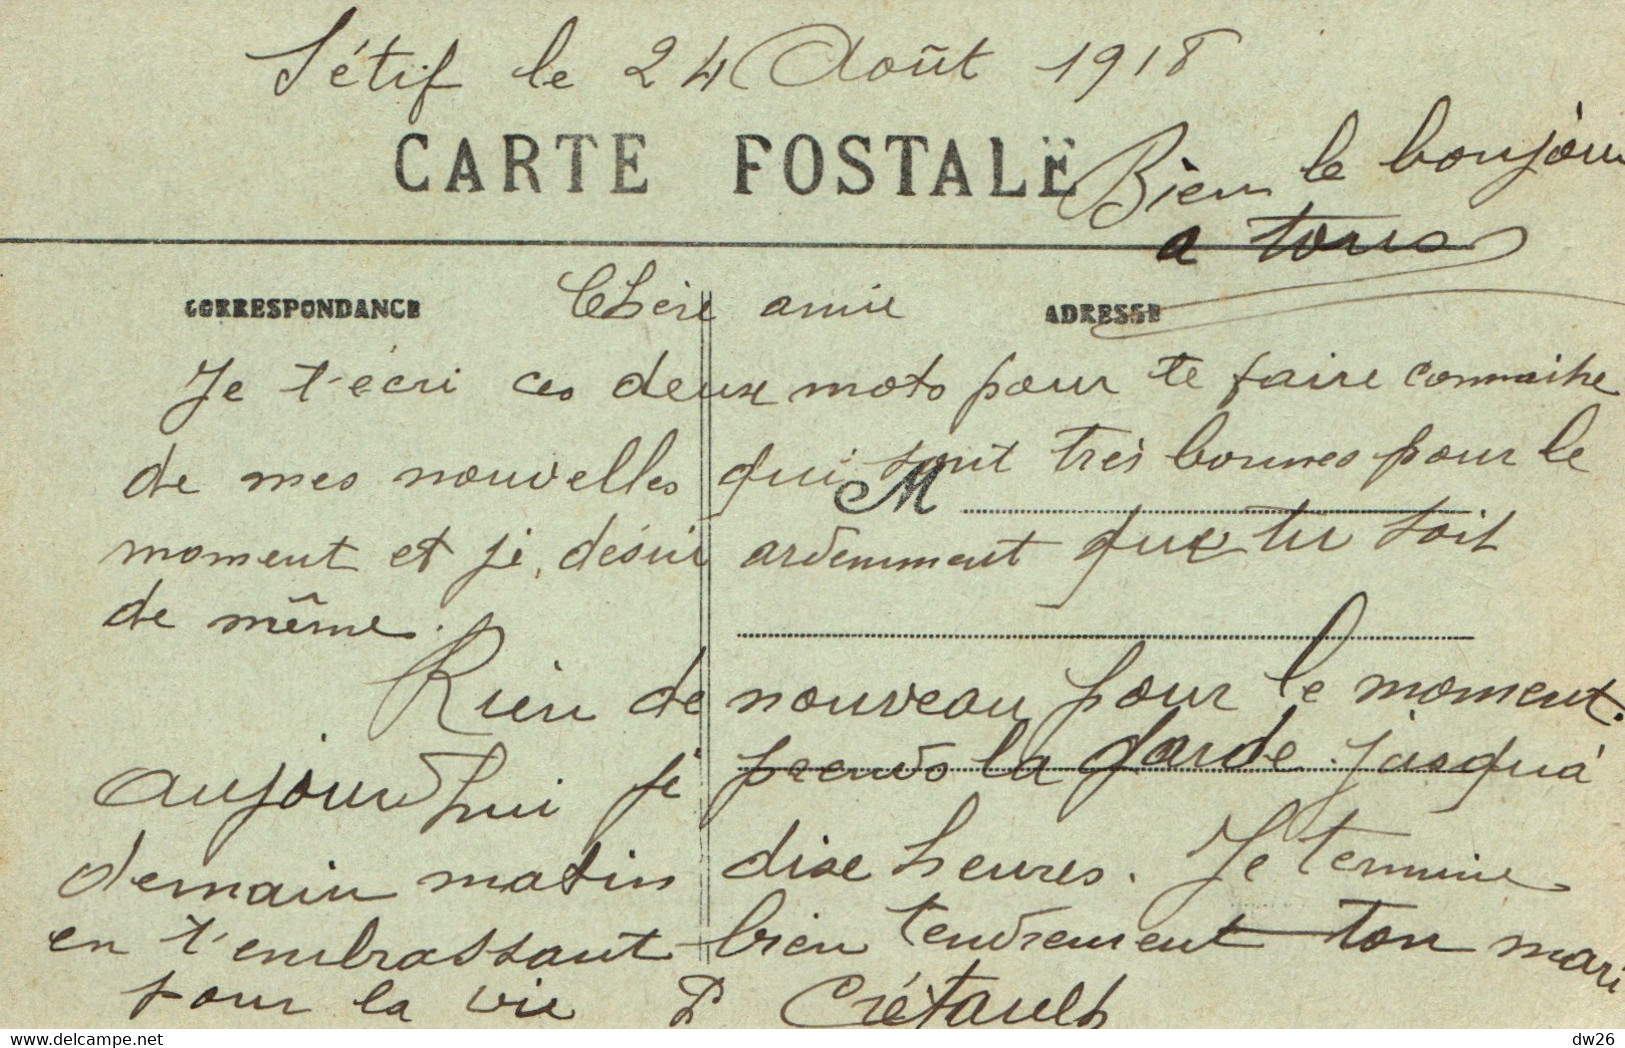 Sétif le 24 Août 1918
CARTE POSTALE
Bien le bonjour
a tous
CORRESPONDANCE
ADRESSE
Chère amie
Je t'écri ces deux mots pour te faire connaitre
de mes nouvelles qui sont très bonnes pour le
M
moment et je désire ardemment que tu soit
de même.
Rien de nouveau pour le moment.
aujourd hui je prends la garde jusqu'à
demain matin dixe heures. Je termine
en t'embrassant bien tendrement ton mari
pour la vie P Crétault
delcampe.net
dw26